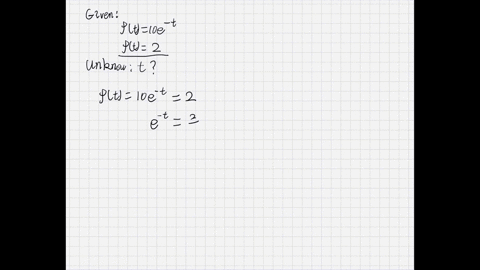 Given:
ρ(t)=10e^-t
ρ(t)= 2
Unknow: t ?
ρ(t)= 10e^-t = 2
e^-t = 2